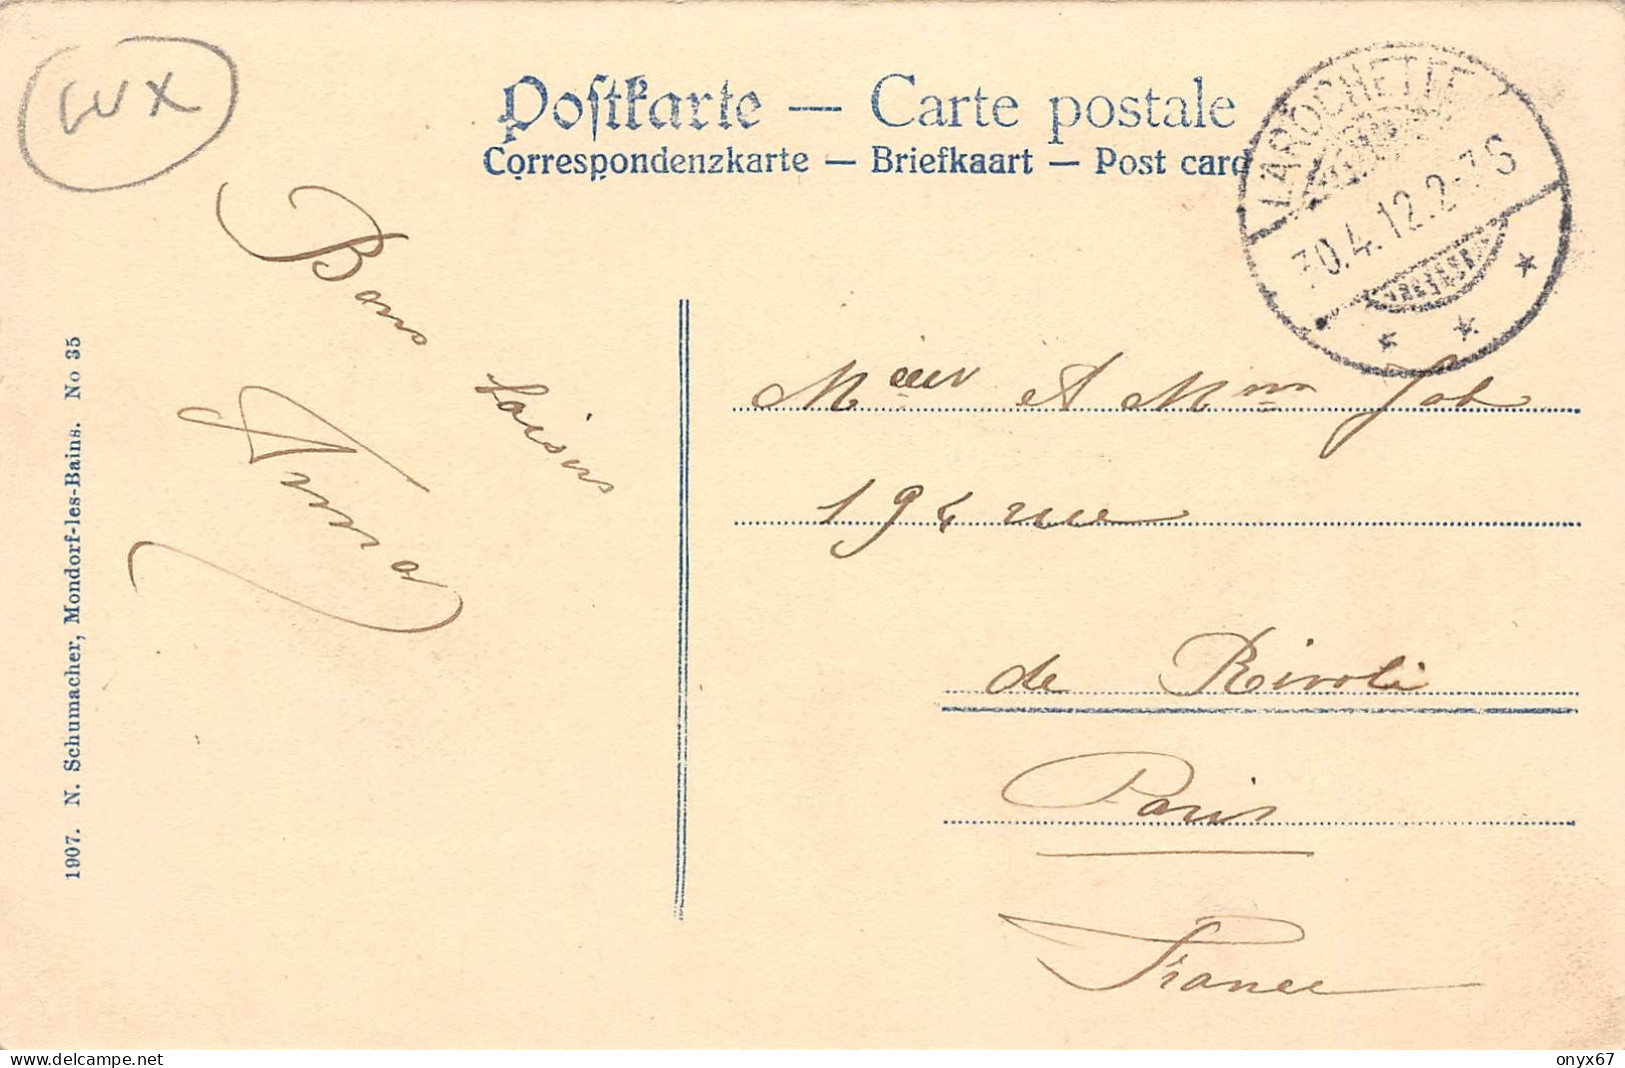 LUX
Postkarte — Carte postale
Correspondenzkarte — Briefkaart — Post card
LAROCHETTE
30.4.12.2-3S
Bons baisers
Anna
Msieur et Mme Job
194 rue
de Rivoli
Paris
France
1907. N. Schumacher, Mondorf-les-Bains. No 35
delcampe.net
onyx67